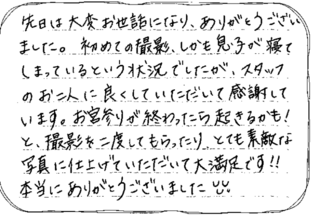 先日は大変お世話になり、ありがとうござい
ました。初めての撮影、しかも息子が寝て
しまっているという状況でしたが、スタッフ
のお二人に良くしていただいて感謝して
います。お宮参りが終わったら起きるかも!
と、撮影を二度してもらったり、とても素敵な
写真に仕上げていただいて大満足です!!
本当にありがとうございました